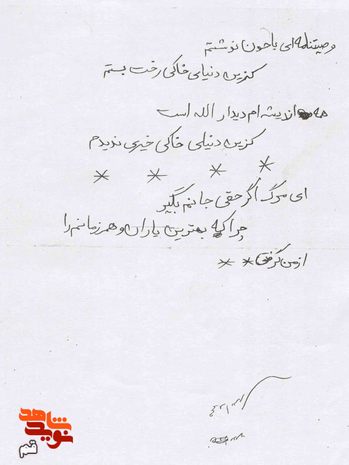 وصیتنامه ای با خون نوشتم
کزین دنیای خاکی رخت بستم
همه اندیشه ام دیدار الله است
کزین دنیای خاکی خیری ندیدم
* * * *
ای مرگ اگر حقی جانم بگیر
چرا که بهترین یاران و همرزمانم را
از من گرفتی * *
نوید شاهد